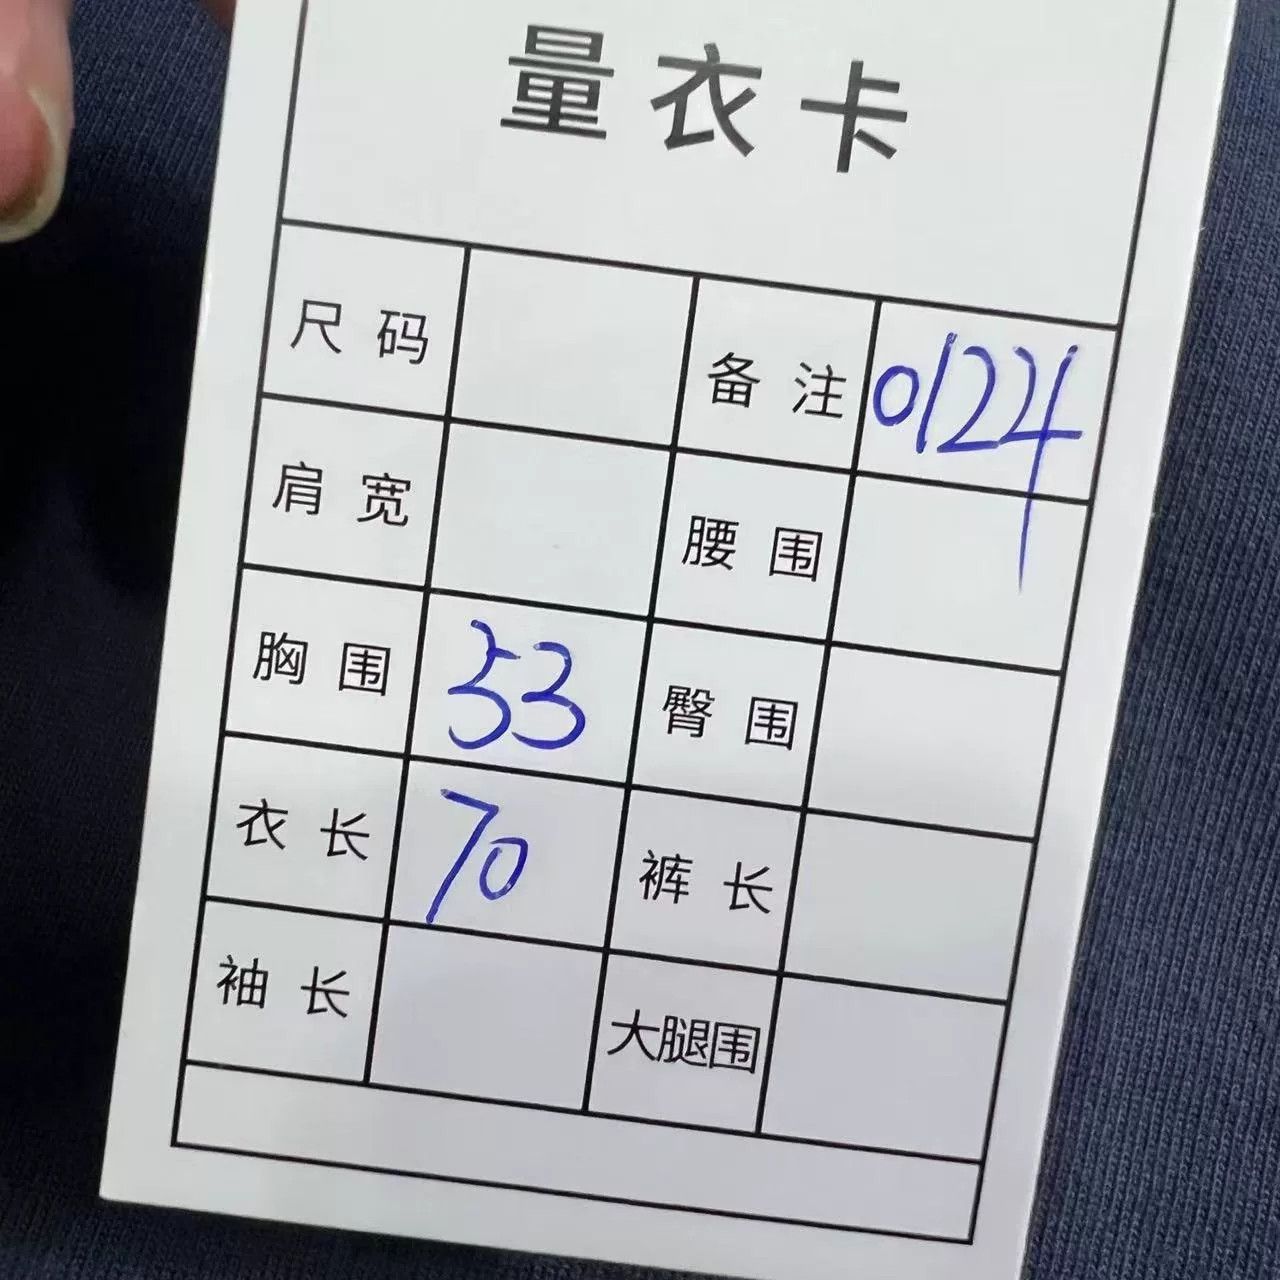 量衣卡
尺码 备注 0124
肩宽 腰围
胸围 53 臀围
衣长 70 裤长
袖长 大腿围